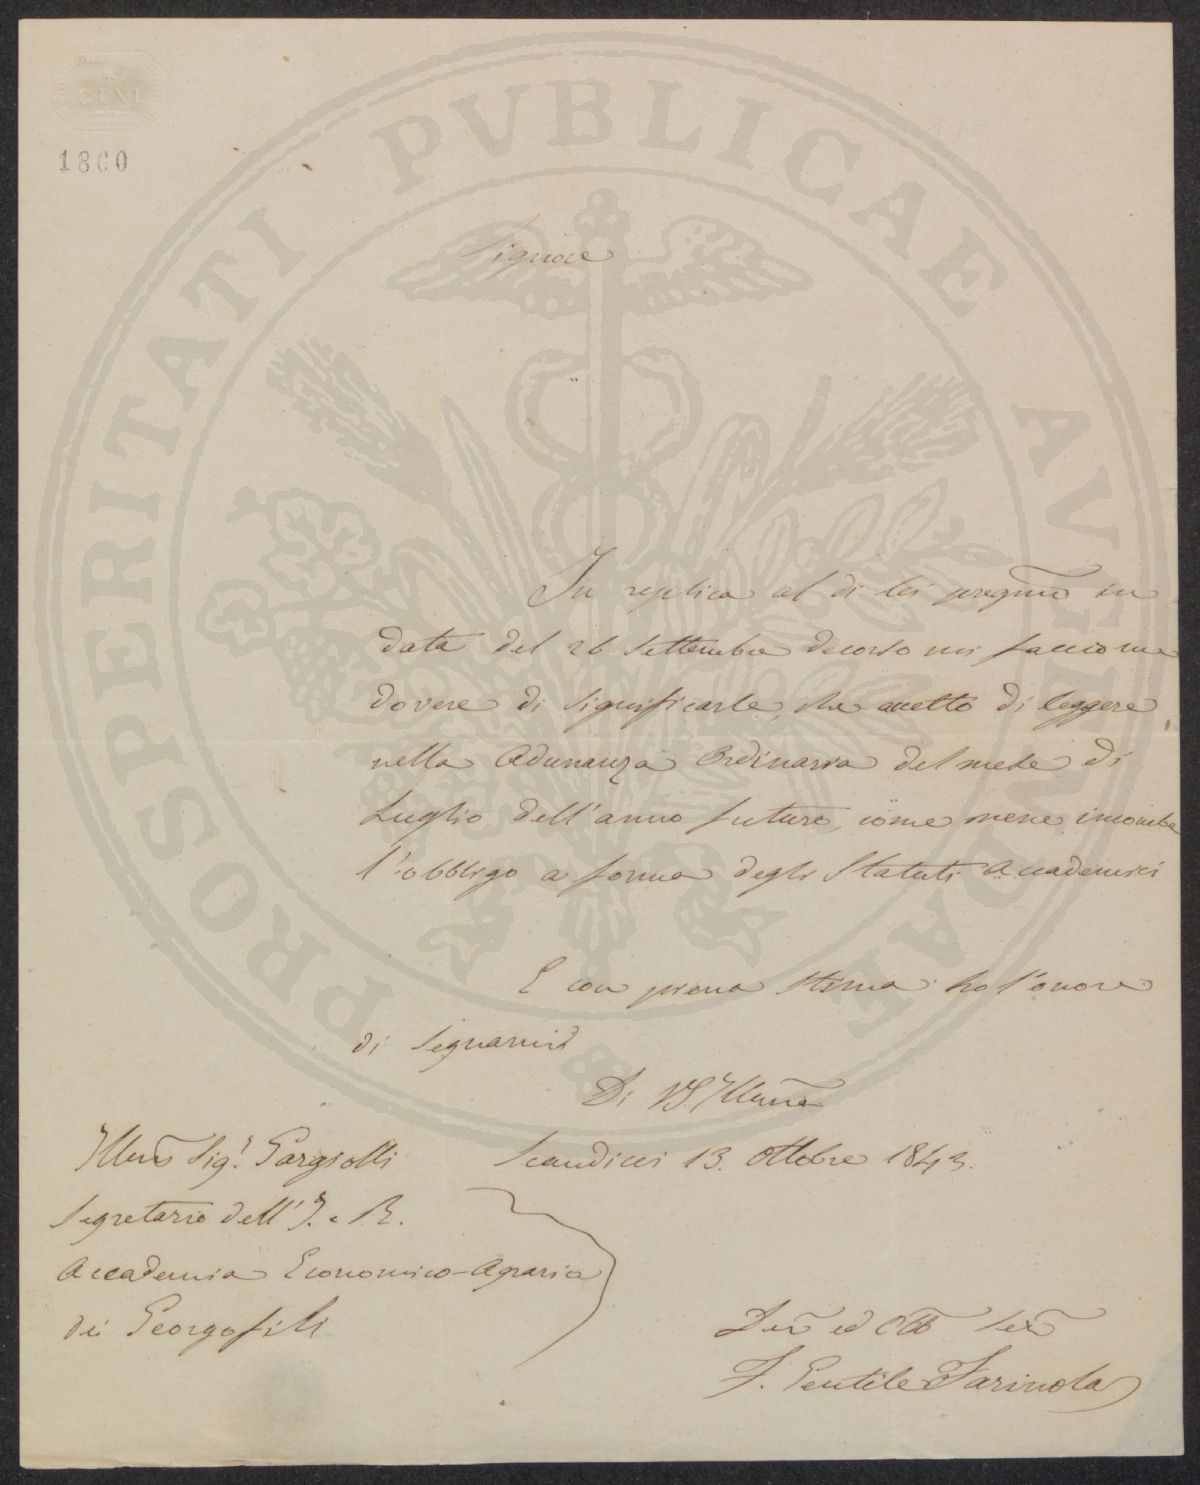 CINI
1860
PROSPERITATI PVBLICAE AVGENDAE
Signore
In replica al di lei pregmo in
data del 26 Settembre decorso mi faccio un
dovere di significarle, che accetto di leggere
nella Adunanza Ordinaria del mese di
Luglio dell'anno futuro, come mene incombe
l'obbligo a forma degli Statuti Accademici
E con piena stima ho l'onore
di segnarmi
Di VS. Illma
Scandicci 13. Ottobre 1843.
Illmo Sigr. Gargiolli
Segretario dell'I. e R.
Accademia Economico-Agraria
dei Georgofili
Devo ed Obbo Serv
F. Gentile Farinola